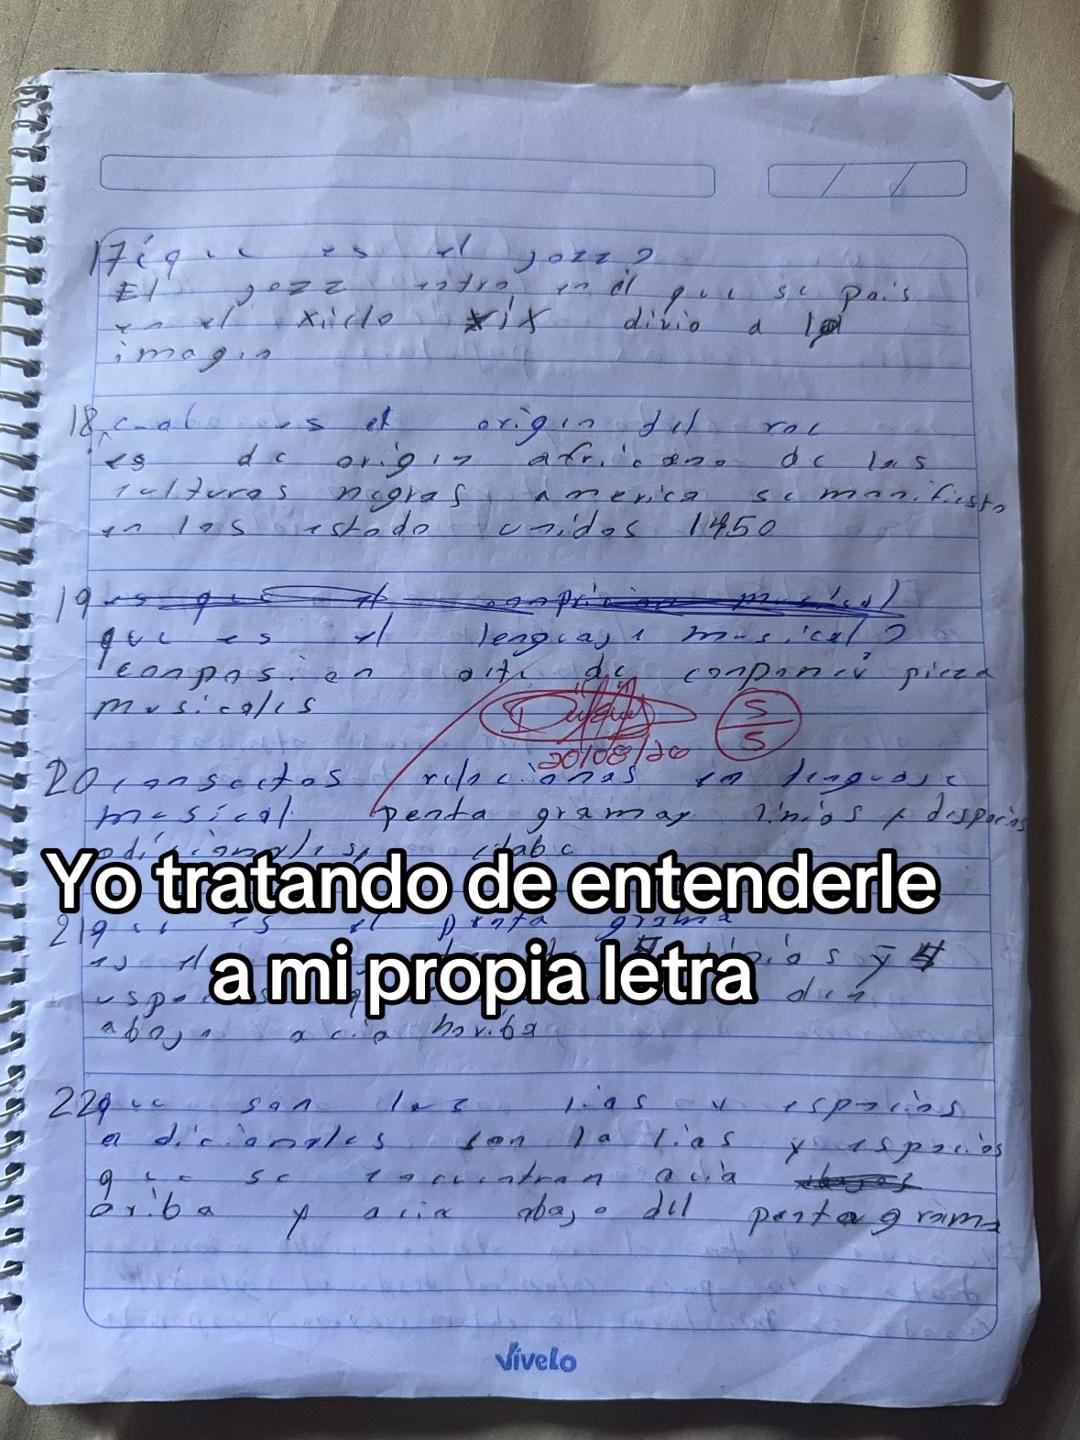 17 ¿que es el jozz?
El jozz entro en el que se pais
en el xiclo XIX divio a la
imagin
18 cual es el origin del roc
es de origin africano de las
culturas negras america se manifiesta
en los estado unidos 1950
19
que es el lenguaje musical?
conposicion arte de conponer pieza
musicales
5/5
20/08/20
20 consectos relacionas en lenguaje
musical penta grama y linias y despacios
adicionales
Yo tratando de entenderle
21 que es el penta grama
es el linias y 4
a mi propia letra
abajo acia horriba
22 que son las lias y espacios
adicionales son la lias y espacios
que se encuentran acia
ariba y acia abajo del pentagrama
Vívelo